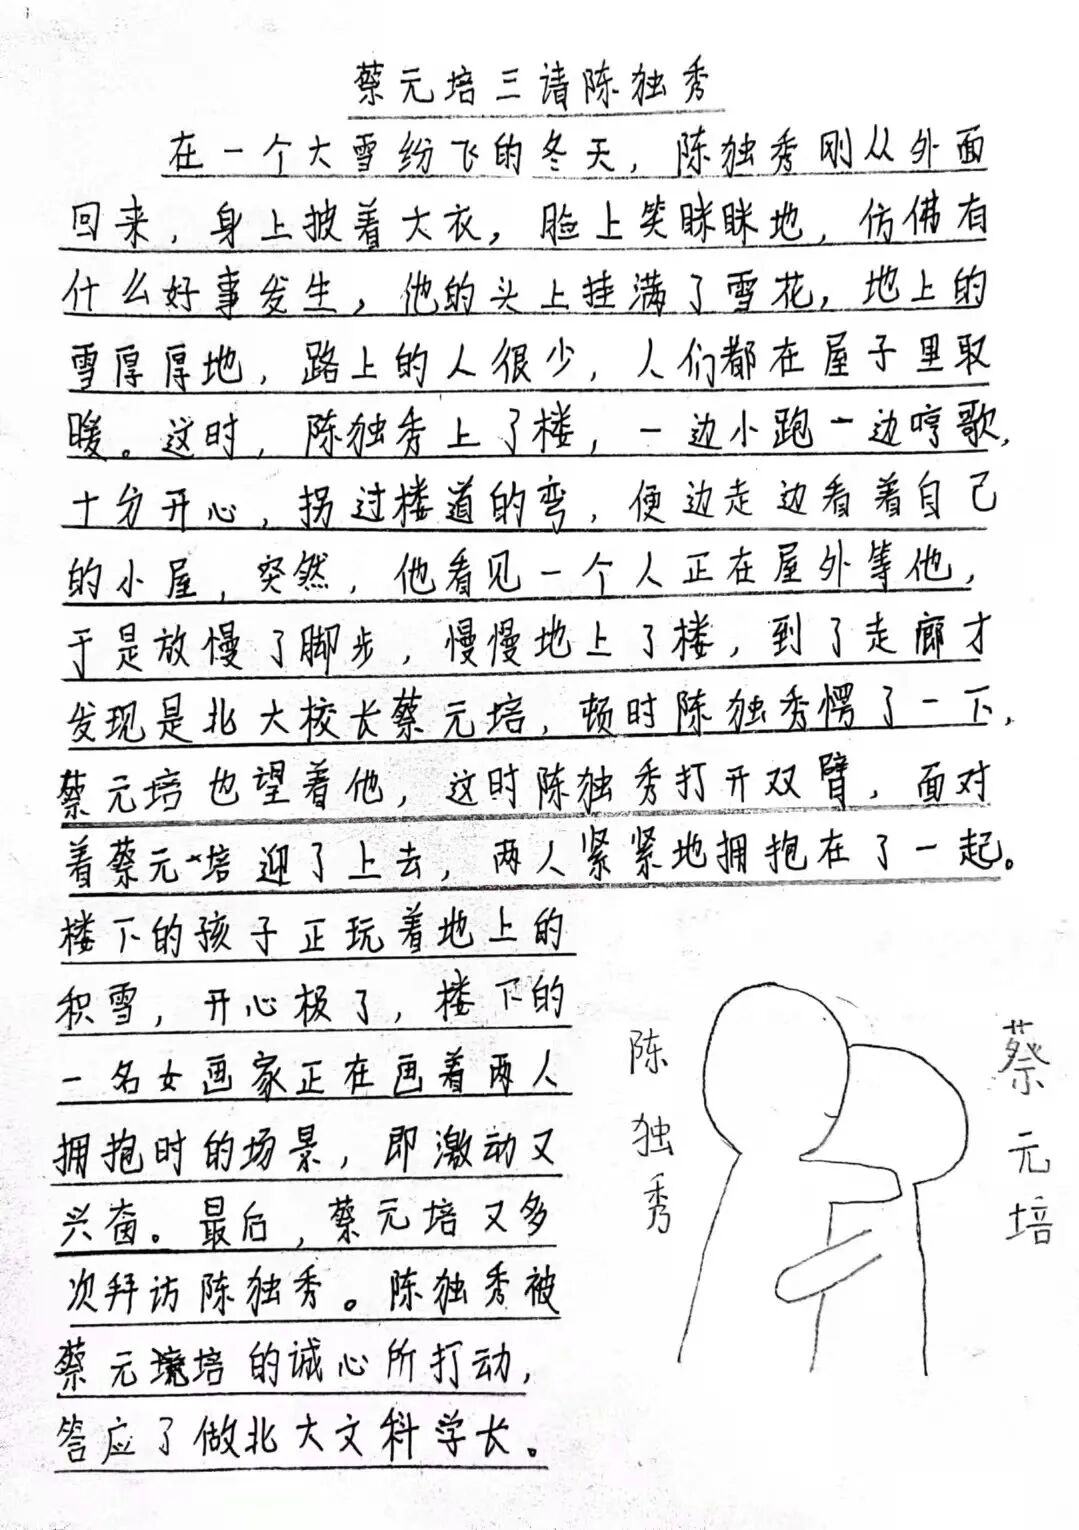 蔡元培三请陈独秀
在一个大雪纷飞的冬天，陈独秀刚从外面
回来，身上披着大衣，脸上笑眯眯地，仿佛有
什么好事发生，他的头上挂满了雪花，地上的
雪厚厚地，路上的人很少，人们都在屋子里取
暖。这时，陈独秀上了楼，一边小跑一边哼歌，
十分开心，拐过楼道的弯，便边走边看着自己
的小屋，突然，他看见一个人正在屋外等他，
于是放慢了脚步，慢慢地上了楼，到了走廊才
发现是北大校长蔡元培，顿时陈独秀愣了一下，
蔡元培也望着他，这时陈独秀打开双臂，面对
着蔡元培迎了上去，两人紧紧地拥抱在了一起。
楼下的孩子正玩着地上的
积雪，开心极了，楼下的
一名女画家正在画着两人
拥抱时的场景，即激动又
兴奋。最后，蔡元培又多
次拜访陈独秀。陈独秀被
蔡元境培的诚心所打动，
答应了做北大文科学长。
陈独秀
蔡元培